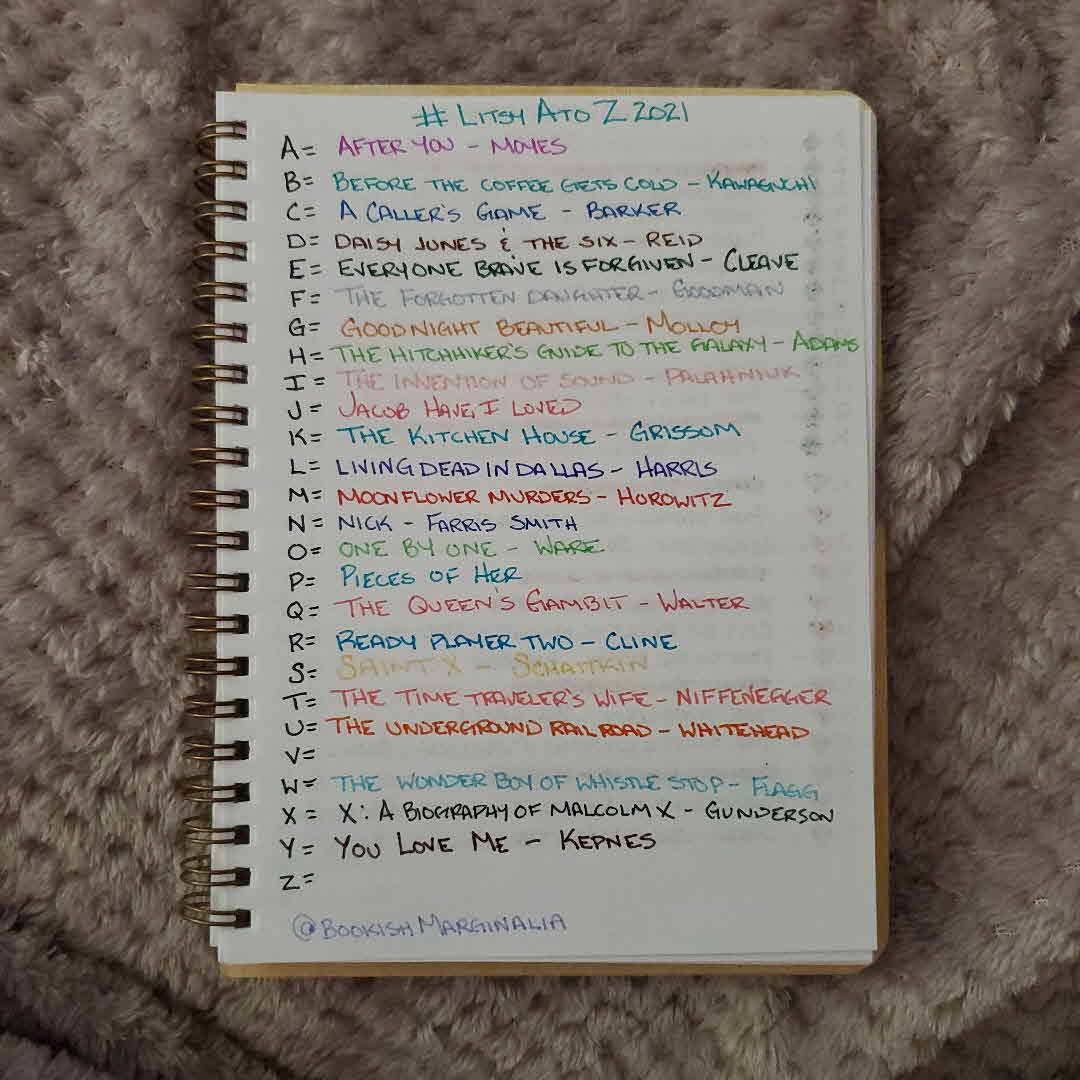 # LITSY A TO Z 2021
A= AFTER YOU - MOYES
B= BEFORE THE COFFEE GETS COLD - KAWAGUCHI
C= A CALLER'S GAME - BARKER
D= DAISY JONES & THE SIX - REID
E= EVERYONE BRAVE IS FORGIVEN - CLEAVE
F= THE FORGOTTEN DAUGHTER - GOODMAN
G= GOODNIGHT BEAUTIFUL - MOLLOY
H= THE HITCHHIKER'S GUIDE TO THE GALAXY - ADAMS
I= THE INVENTION OF SOUND - PALAHNIUK
J= JACOB HAVE I LOVED
K= THE KITCHEN HOUSE - GRISSOM
L= LIVING DEAD IN DALLAS - HARRIS
M= MOONFLOWER MURDERS - HOROWITZ
N= NICK - FARRIS SMITH
O= ONE BY ONE - WARE
P= PIECES OF HER
Q= THE QUEEN'S GAMBIT - WALTER
R= READY PLAYER TWO - CLINE
S= SAINT X - SCHAITKIN
T= THE TIME TRAVELER'S WIFE - NIFFENEGGER
U= THE UNDERGROUND RAILROAD - WHITEHEAD
V=
W= THE WONDER BOY OF WHISTLE STOP - FLAGG
X= X: A BIOGRAPHY OF MALCOLM X - GUNDERSON
Y= YOU LOVE ME - KEPNES
Z=
@BOOKISHMARGINALIA